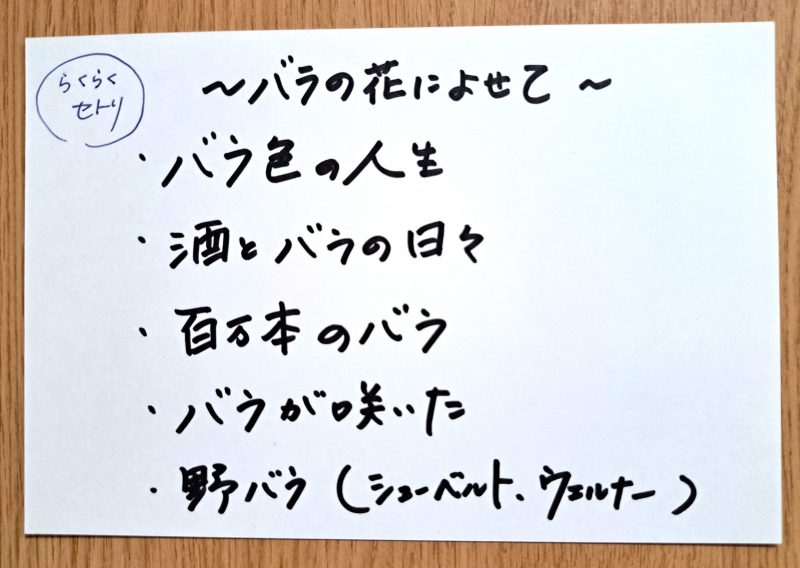 らくらく
セトリ
～バラの花によせて～
・バラ色の人生
・酒とバラの日々
・百万本のバラ
・バラが咲いた
・野バラ(シューベルト、ウェルナー)